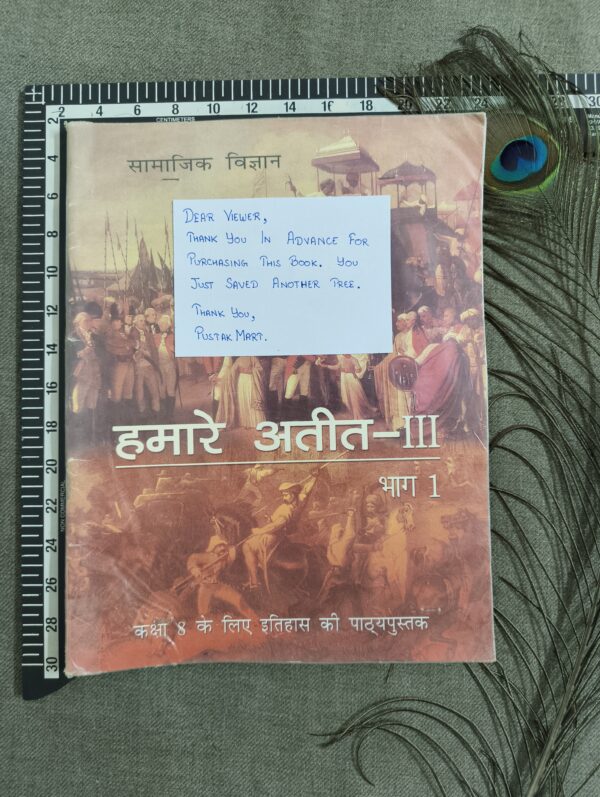 2 4 6 8 10 12 14 16 18 20 22 24 28 30
CENTIMETERS
2
4
6
8
10
12
14
16
18
20
22
24
26
28
30
NON COMMERCIAL
सामाजिक विज्ञान
DEAR VIEWER,
THANK YOU IN ADVANCE FOR
PURCHASING THIS BOOK. YOU
JUST SAVED ANOTHER TREE.
THANK YOU,
PUSTAK MART.
हमारे अतीत–III
भाग 1
कक्षा 8 के लिए इतिहास की पाठ्यपुस्तक